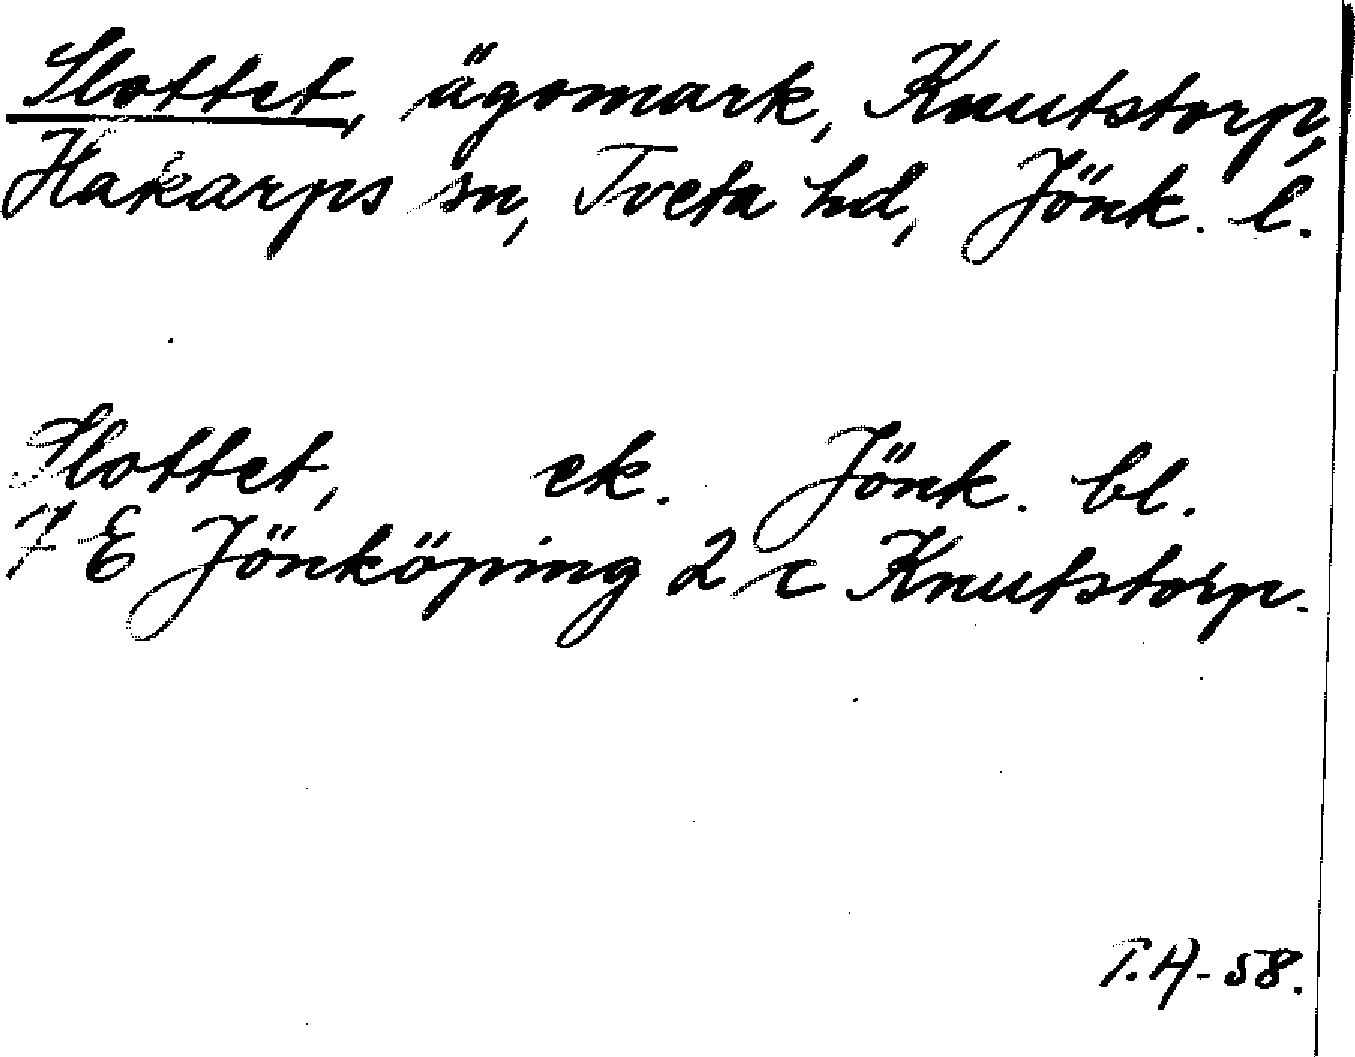 Slottet, ägomark, Knutstorp,
Hakarps sn, Tveta hd, Jönk. l.
Slottet, ek. Jönk. bl.
7 E Jönköping 2 c Knutstorp.
T.A-58.